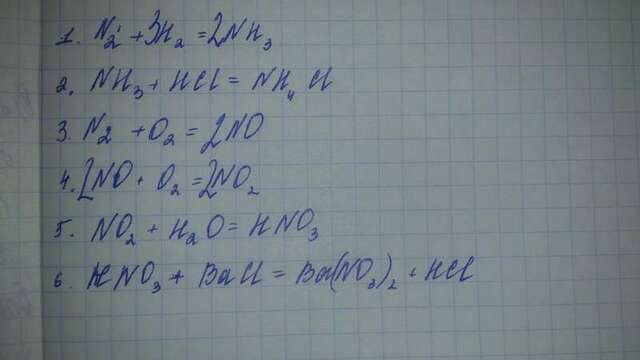 1. N₂ + 3H₂ = 2NH₃
2. NH₃ + HCl = NH₄Cl
3. N₂ + O₂ = 2NO
4. 2NO + O₂ = 2NO₂
5. NO₂ + H₂O = HNO₃
6. HNO₃ + BaCl = Ba(NO₃)₂ + HCl